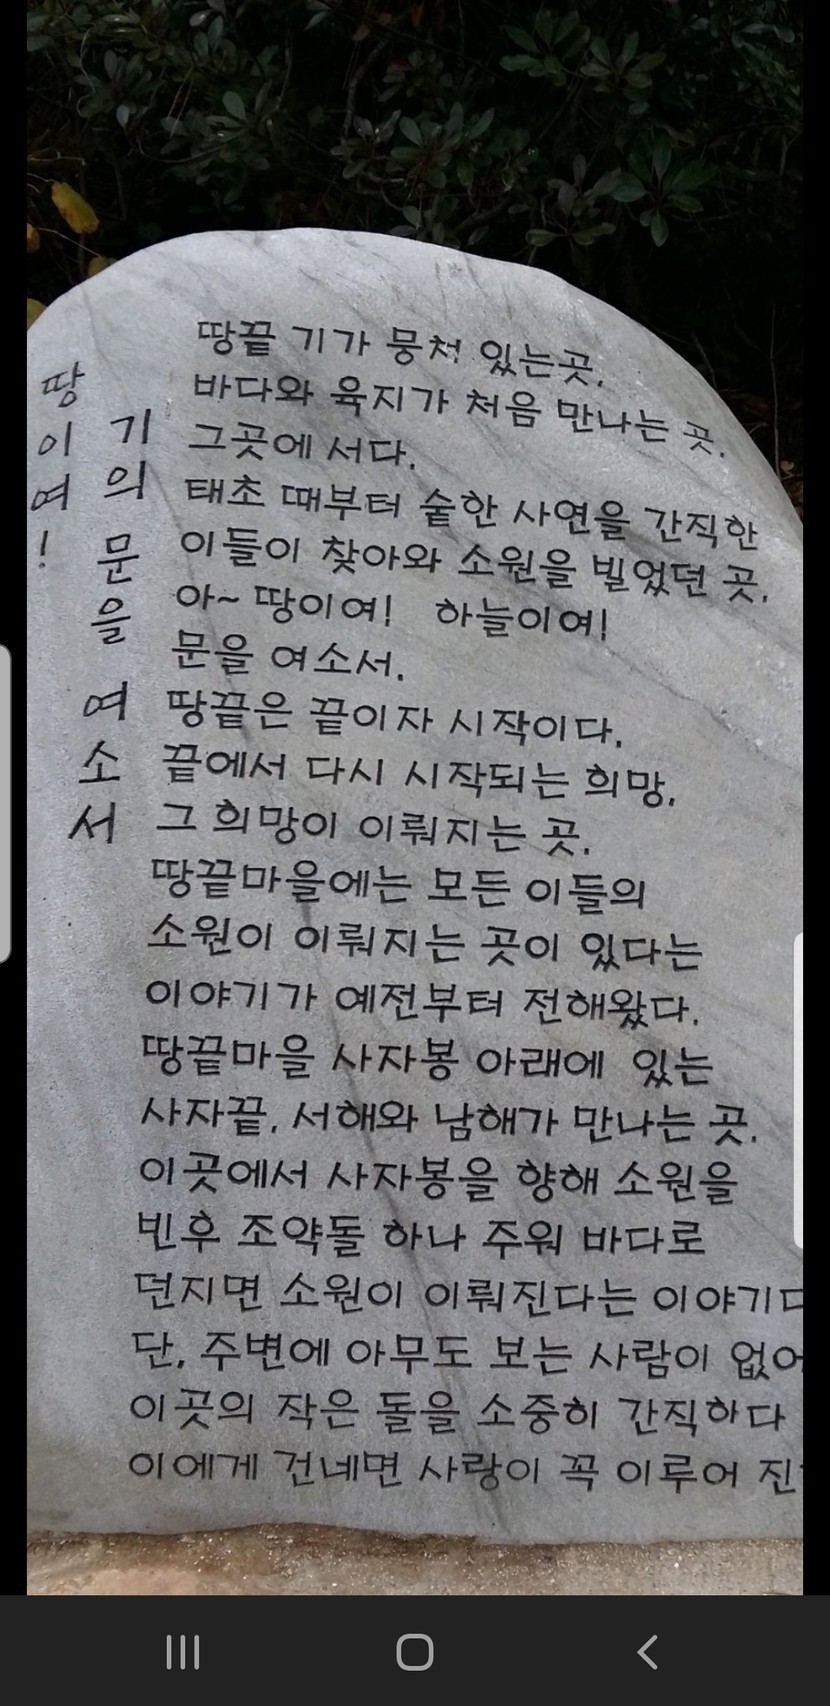 땅이여!
기의 문을 여소서
땅끝 기가 뭉쳐 있는곳.
바다와 육지가 처음 만나는 곳.
그곳에 서다.
태초 때부터 숱한 사연을 간직한
이들이 찾아와 소원을 빌었던 곳.
아~ 땅이여! 하늘이여!
문을 여소서.
땅끝은 끝이자 시작이다.
끝에서 다시 시작되는 희망.
그 희망이 이뤄지는 곳.
땅끝마을에는 모든 이들의
소원이 이뤄지는 곳이 있다는
이야기가 예전부터 전해왔다.
땅끝마을 사자봉 아래에 있는
사자끝, 서해와 남해가 만나는 곳.
이곳에서 사자봉을 향해 소원을
빈후 조약돌 하나 주워 바다로
던지면 소원이 이뤄진다는 이야기
단, 주변에 아무도 보는 사람이
이곳의 작은 돌을 소중히 간직하다
이에게 건네면 사랑이 꼭 이루어